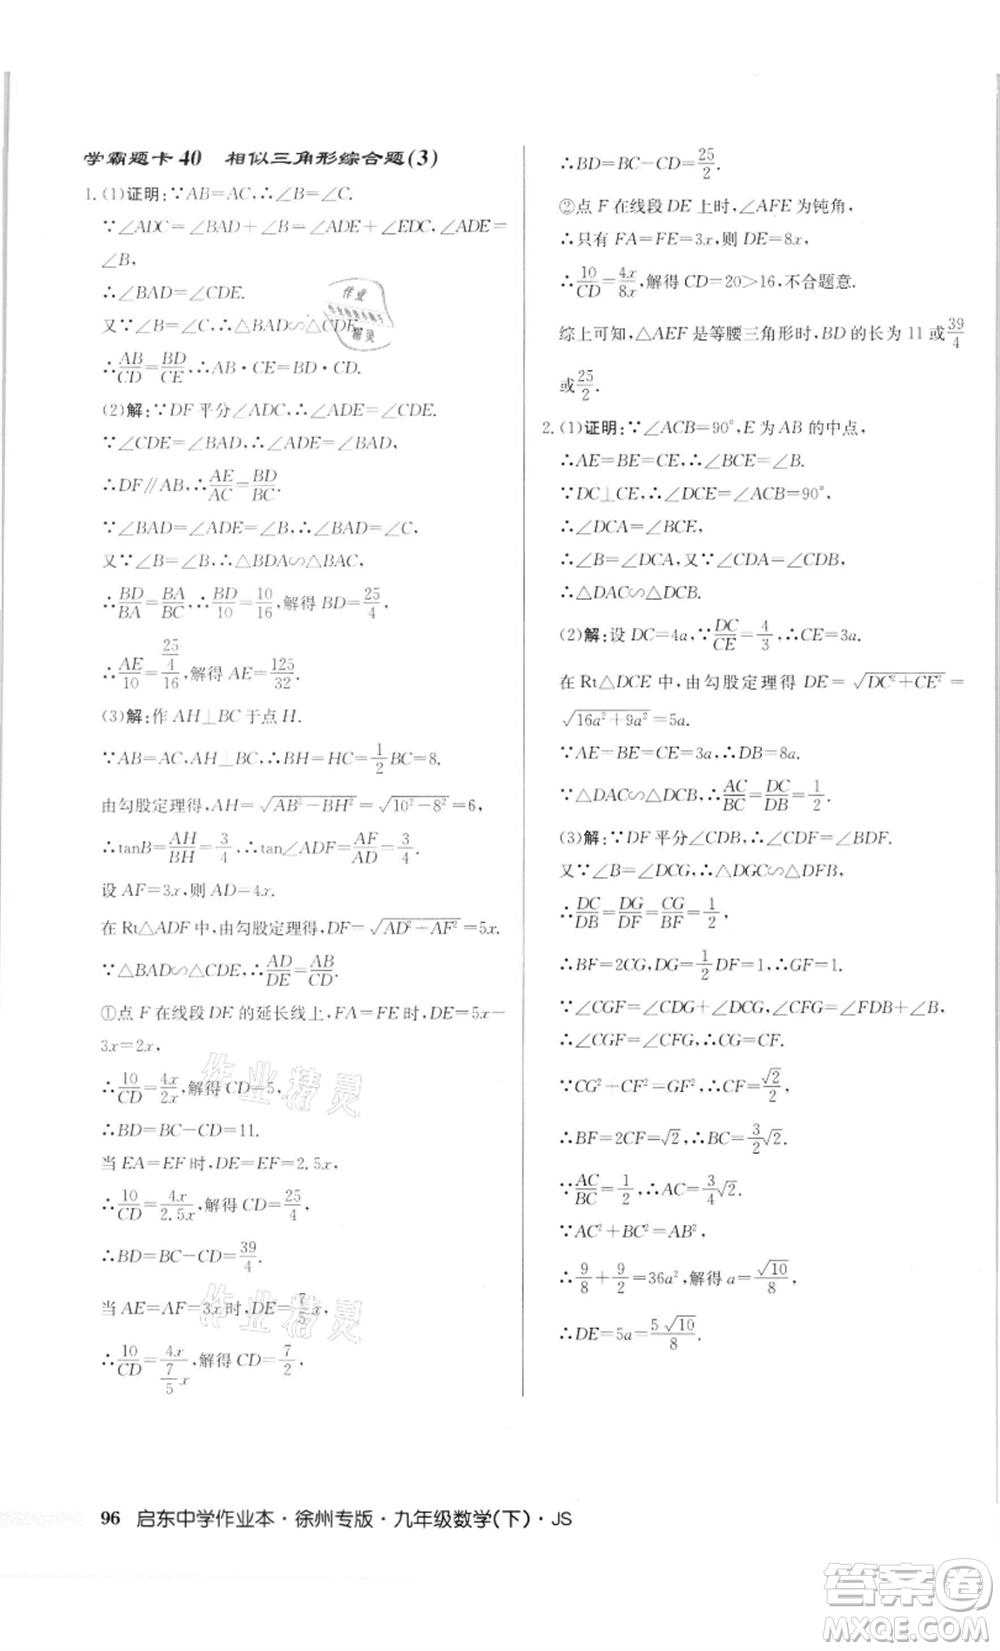 学霸题卡40 相似三角形综合题(3)
1. (1)证明:∵AB=AC,∴∠B=∠C.
∵∠ADC=∠BAD+∠B=∠ADE+∠EDC,∠ADE=
∠B,
∴∠BAD=∠CDE.
又∵∠B=∠C,∴△BAD∽△CDE,
∴AB/CD=BD/CE,∴AB·CE=BD·CD.
(2)解:∵DF平分∠ADC,∴∠ADE=∠CDE,
∵∠CDE=∠BAD,∴∠ADE=∠BAD,
∴DF∥AB,∴AE/AC=BD/BC.
∵∠BAD=∠ADE=∠B,∴∠BAD=∠C,
又∵∠B=∠B,∴△BDA∽△BAC,
∴BD/BA=BA/BC,∴BD/10=10/16,解得BD=25/4,
∴AE/10=(25/4)/16,解得AE=125/32.
(3)解:作AH⊥BC于点H.
∵AB=AC,AH⊥BC,∴BH=CH=1/2BC=8.
由勾股定理得,AH=√(AB²-BH²)=√(10²-8²)=6,
∴tanB=AH/BH=3/4,∴tan∠ADF=AF/AD=3/4.
设AF=3x,则AD=4x.
在Rt△ADF中,由勾股定理得,DF=√(AD²+AF²)=5x.
∵△BAD∽△CDE,∴AD/DE=AB/CD.
①点F在线段DE的延长线上,FA=FE时,DE=5x-
3x=2x,
∴10/CD=4x/2x,解得CD=5,
∴BD=BC-CD=11.
当EA=EF时,DE=EF=2.5x,
∴10/CD=4x/2.5x,解得CD=25/4,
∴BD=BC-CD=39/4.
当AE=AF=3x时,DE=7/5x,
∴10/CD=4x/(7/5x),解得CD=7/2,
∴BD=BC-CD=25/2.
②点F在线段DE上时,∠AFE为钝角,
∴只有FA=FE=3x,则DE=8x,
∴10/CD=4x/8x,解得CD=20>16,不合题意.
综上可知,△AEF是等腰三角形时,BD的长为11或39/4
或25/2.
2. (1)证明:∵∠ACB=90°,E为AB的中点,
∴AE=BE=CE,∴∠BCE=∠B.
∵DC⊥CE,∴∠DCE=∠ACB=90°,
∴∠DCA=∠BCE,
∴∠B=∠DCA,又∵∠CDA=∠CDB,
∴△DAC∽△DCB.
(2)解:设DC=4a,∵DC/CE=4/3,∴CE=3a.
在Rt△DCE中,由勾股定理得DE=√(DC²+CE²)=
√(16a²+9a²)=5a.
∵AE=BE=CE=3a,∴DB=8a.
∵△DAC∽△DCB,∴AC/BC=DC/DB=1/2.
(3)解:∵DF平分∠CDB,∴∠CDF=∠BDF.
又∵∠B=∠DCG,∴△DGC∽△DFB,
∴DC/DB=DG/DF=CG/BF=1/2,
∴BF=2CG,DG=1/2DF=1,∴GF=1.
∵∠CGF=∠CDG+∠DCG,∠CFG=∠FDB+∠B,
∴∠CGF=∠CFG,∴CG=CF.
∵CG²+CF²=GF²,∴CF=√2/2,
∴BF=2CF=√2,∴BC=3/2√2.
∵AC/BC=1/2,∴AC=3/4√2.
∵AC²+BC²=AB²,
∴9/8+9/2=36a²,解得a=√10/8,
∴DE=5a=5√10/8.
作业
精灵
作业精灵
作业精灵
96 启东中学作业本·徐州专版·九年级数学(下)·JS
答案圈
MXQE.COM